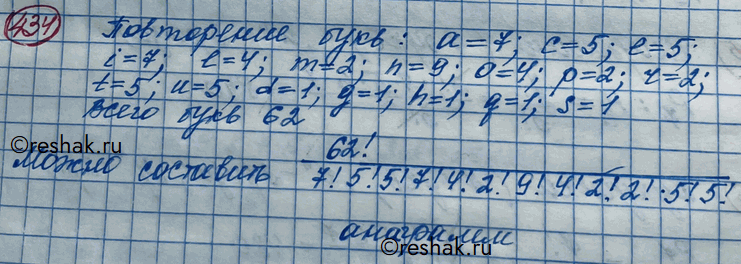 434
Повторение букв: a=7; c=5; e=5;
i=7; l=4; m=2; n=9; o=4; p=2; r=2;
t=5; u=5; d=1; g=1; h=1; q=1; s=1
Всего букв 62
©reshak.ru
Можно составить 62!
7! 5! 5! 7! 4! 2! 9! 4! 2! 2! · 5! 5!
анаграмм
©reshak.ru